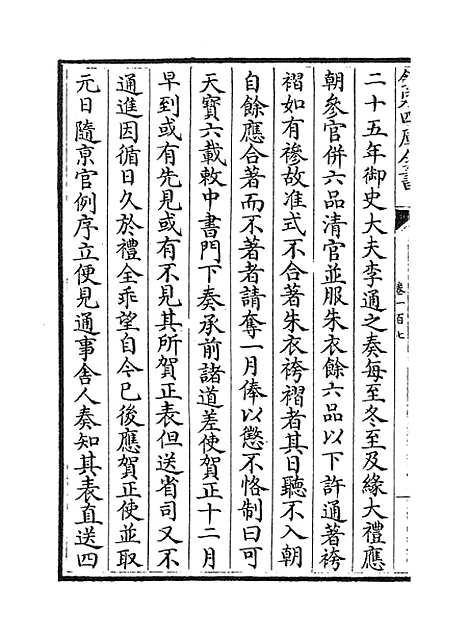 欽定四庫全書
卷一百七
二十五年御史大夫李適之奏每至冬至及緣大禮應
朝參官併六品清官並服朱衣餘六品以下許通著袴
褶如有襂故准式不合著朱衣袴褶者其日聽不入朝
自餘應合著而不著者請奪一月俸以懲不恪制曰可
天寶六載敕中書門下奏承前諸道差使賀正十二月
早到或有先見或有不見其所賀正表但送省司又不
通進因循日久於禮全乖望自今已後應賀正使並取
元日隨京官例序立便見通事舍人奏知其表直送四